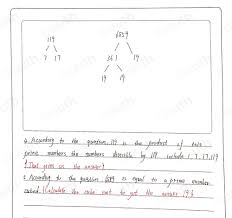 119
7 17
6859
361 19
19 19
a. According to the question, 119 is the product of two
prime numbers the numbers divisible by 119 include 1, 7, 17, 119
(That gives us the answer)
c. According to the question, 6859 is equal to a prime number
cubed. (Calculate the cube root to get the answer 19.)